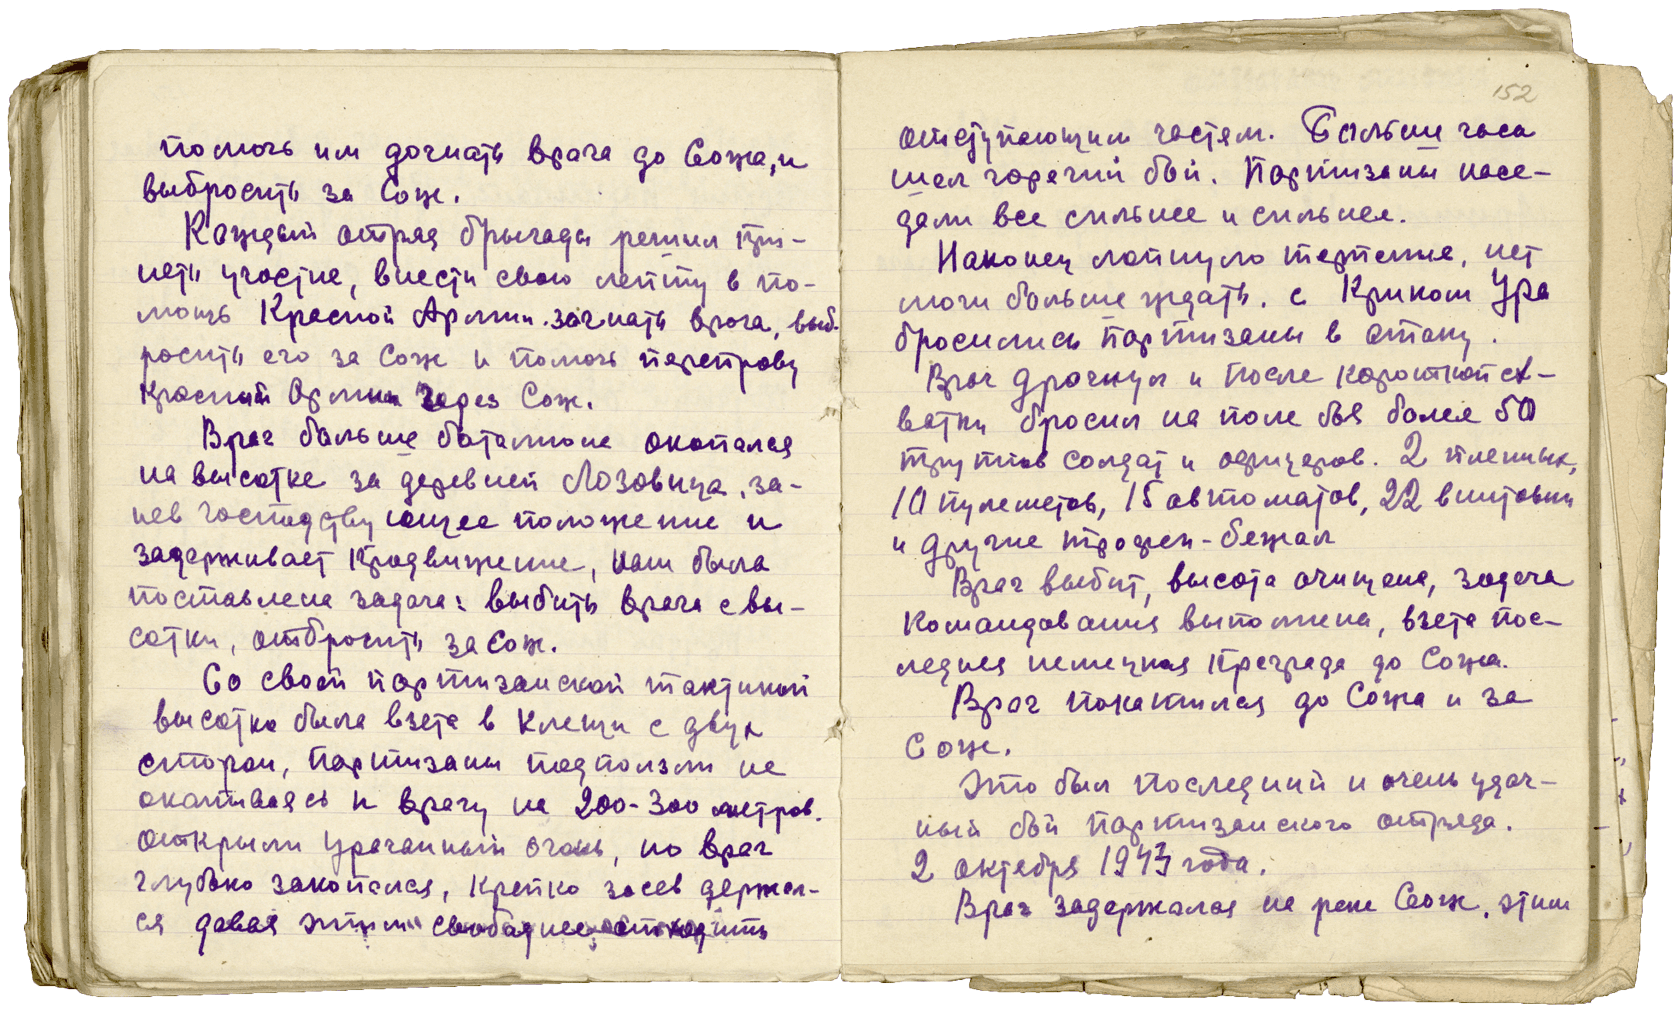 помочь им догнать врага до Сожа, и
выбросить за Сож.
Каждый отряд бригады решил при-
неть участие, внести свою лепту в по-
мощь Красной Армии. загнать врага, выб-
росить его за Сож и помочь переправу
красной Армии через Сож.
Враг больше баталиона окопался
на высотке за деревней Лозовица, за-
нев господствующее положение и
задерживает продвижение, нам была
поставлена задача: выбить врага с вы-
сотки, отбросить за Сож.
Со своей партизанской тактикой
высотка была взета в клещи с двух
сторон, партизаны подползли не
окапываясь к врагу на 200-300 метров.
открыли ураганный огонь, но враг
глубоко закопался, крепко засев держал-
ся давая этим свободнее отходить
152
отступающим частям. Больше часа
шел горячий бой. Партизаны насе-
дали все сильнее и сильнее.
Наконец лопнуло терпение, нет
мочи больше ждать. с Криком Ура
бросились партизаны в атаку.
Враг дрогнул и после короткой сх-
ватки бросил на поле боя более 50
трупов солдат и офицеров. 2 пленных,
10 пулеметов, 15 автоматов, 22 винтовки
и другие трофеи - бежал
Враг выбит, высота очищена, задача
командования выполнена, взета пос-
ледняя немецкая преграда до Сожа.
Враг покатился до Сожа и за
Сож.
Это был последний и очень удач-
ный бой партизанского отряда.
2 октября 1943 года.
Враг задержался на реке Сож. этим